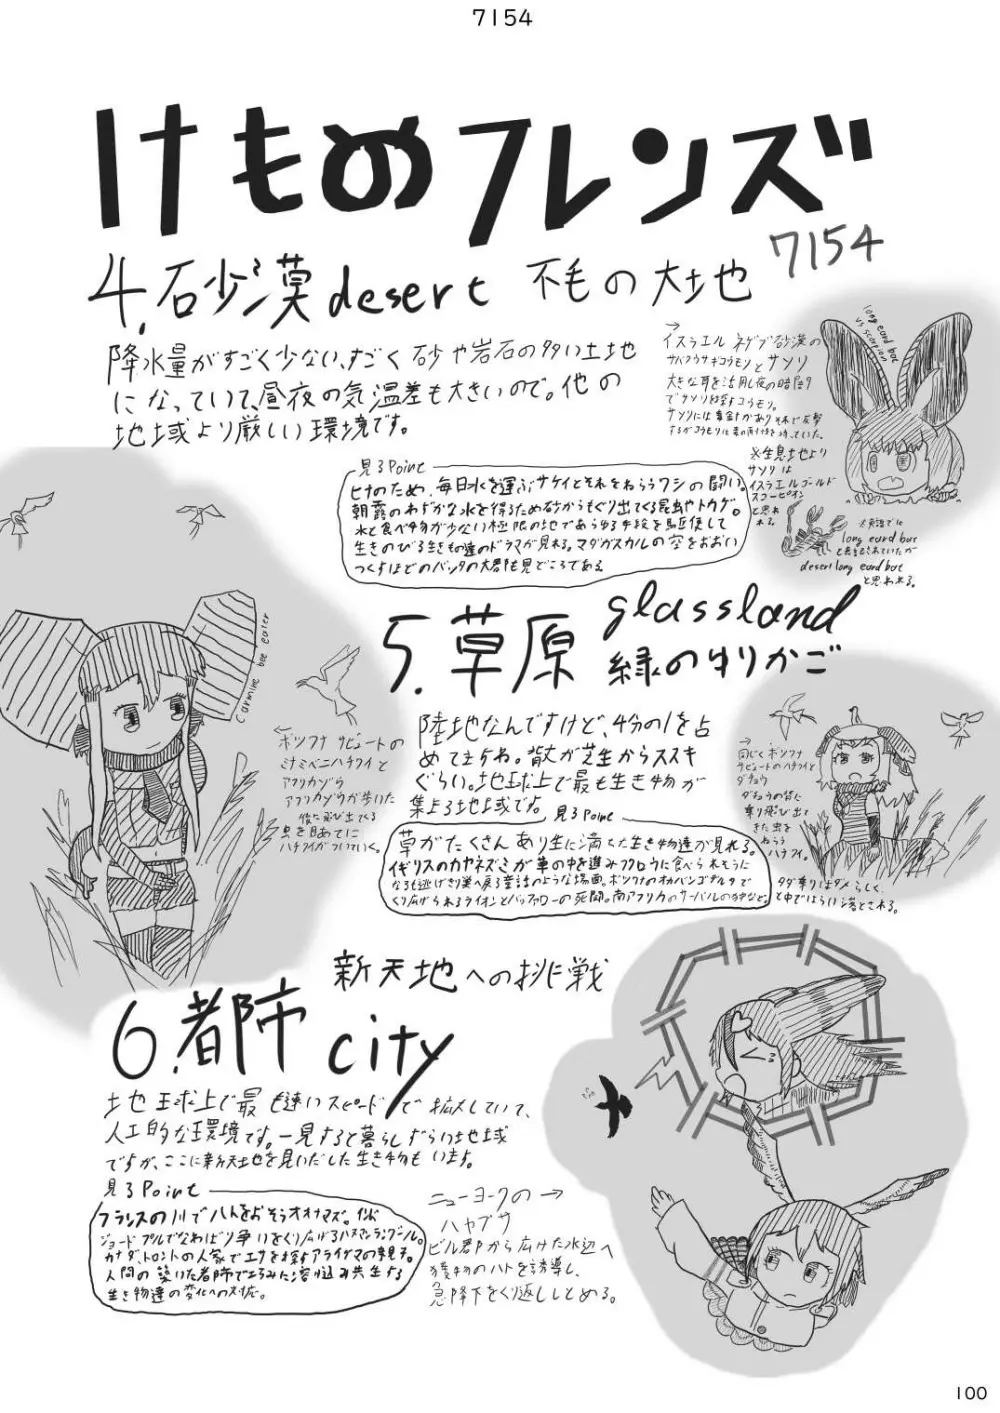 7154
けものフレンズ
7154
4.砂漠desert 不毛の大地
降水量がすごく少ない、すごく砂や岩石の多い土地
になっていて、昼夜の気温差も大きいので。他の
地域より厳しい環境です。
→
イスラエル ネゲブ砂漠の
サバクウサギコウモリとサソリ
大きな耳を活用し夜の暗闇
でサソリを探すコウモリ。
サソリには毒針があり
long eard bat
vs scorpion
※生息地より
サソリは
イスラエルゴールド
スコーピオン
と思われる
※英語では
long eard bat
と表記されていたが
desert long eard bat
と思われる。
見るPoint
ヒナのため、毎日水を運ぶサケイとそれをねらうワシの闘い。
朝露のわずかな水を得るため砂からもぐり出てくる昆虫やトカゲ。
水と食べ物が少ない極限の地であらゆる手段を駆使して
生きのびる生きもの達のドラマが見れる。マダガスカルの空をおおい
つくすほどのバッタの大群も見どころである
5.草原 glassland
緑のゆりかご
陸地なんですけど、4分の1を占
めてますね。背丈が芝生からススキ
ぐらい。地球上で最も生き物が
集まる地域です。
carmine bee eater
←
ボツワナ サビュートの
ミナミベニハチクイと
アフリカゾウ
アフリカゾウが歩いた
後に飛び出てくる
虫を目あてに
ハチクイがついていく。
同じくボツワナ
サビュートのハチクイと
ダチョウ
ダチョウの背に
乗り飛び出て
きた虫を
ねらう
ハチクイ。
タダ乗りはダメらしく、
途中ではらい落とされる。
見るPoint
草がたくさんあり生に満ちた生き物達が見れる。
イギリスのカヤネズミが草の中を進みフクロウに食べられそうに
なるも逃げきり巣へ戻る童話のような場面。ボツワナのオカバンゴデルタで
くり広げられるライオンとバッファローの死闘。南アフリカのサーバルの狩など。
新天地への挑戦
6.都市 city
地球上で最も速いスピードで拡大していて、
人工的な環境です。一見すると暮らしずらい地域
ですが、ここに新天地を見いだした生き物もいます。
見るPoint
フランスの川でハトをおそうオオナマズ。インド
ジョードプルでなわばり争いをくり広げるハヌマンラングール。
カナダ、トロントの人家でエサを探すアライグマの親子。
人間の築いた都市でたくみに溶け込み共生する
生き物達の変化への対応。
ニューヨークの→
ハヤブサ
ビル群から広けた水辺へ
獲物のハトを誘導し、
急降下をくり返ししとめる。
100